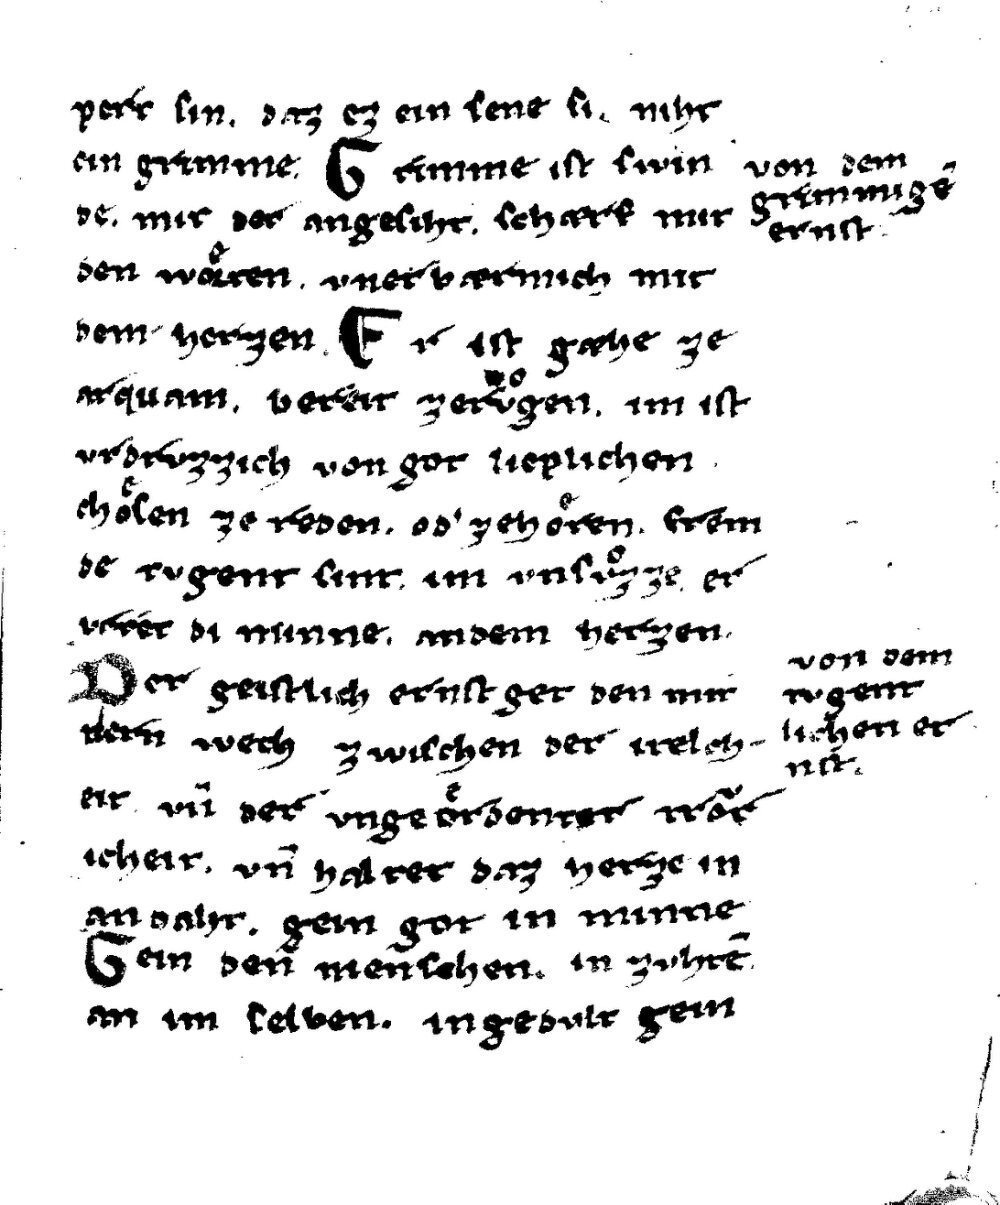 pert sin. daz ez ein sene si. niht
ein grimme. Grimme ist swin
de. mit der angesiht. scharf mit
den woͤrten. vnerbærmich mit
dem herzen. Er ist gæhe ze
arquam. bereit zervͦgen. im ist
vrdruzzich von got lieplichen
choͤsen ze reden. od' zehoͤren. frem
de tvgent sint. im vnsvͦzze. er
di minne. an dem herzen.
Der geistlich ernst get den mit
tern wech zwischen der itelch-
eit vn̄ der vngeoͤrdenter
icheit. vn̄ haltet daz herze in
andaht. gein got in minne
Gein den menschen. in zvhtē.
an im selben. in gedvlt gein
von dem
grimmigē
ernst.
von dem
tvgent
lichen er
nst.